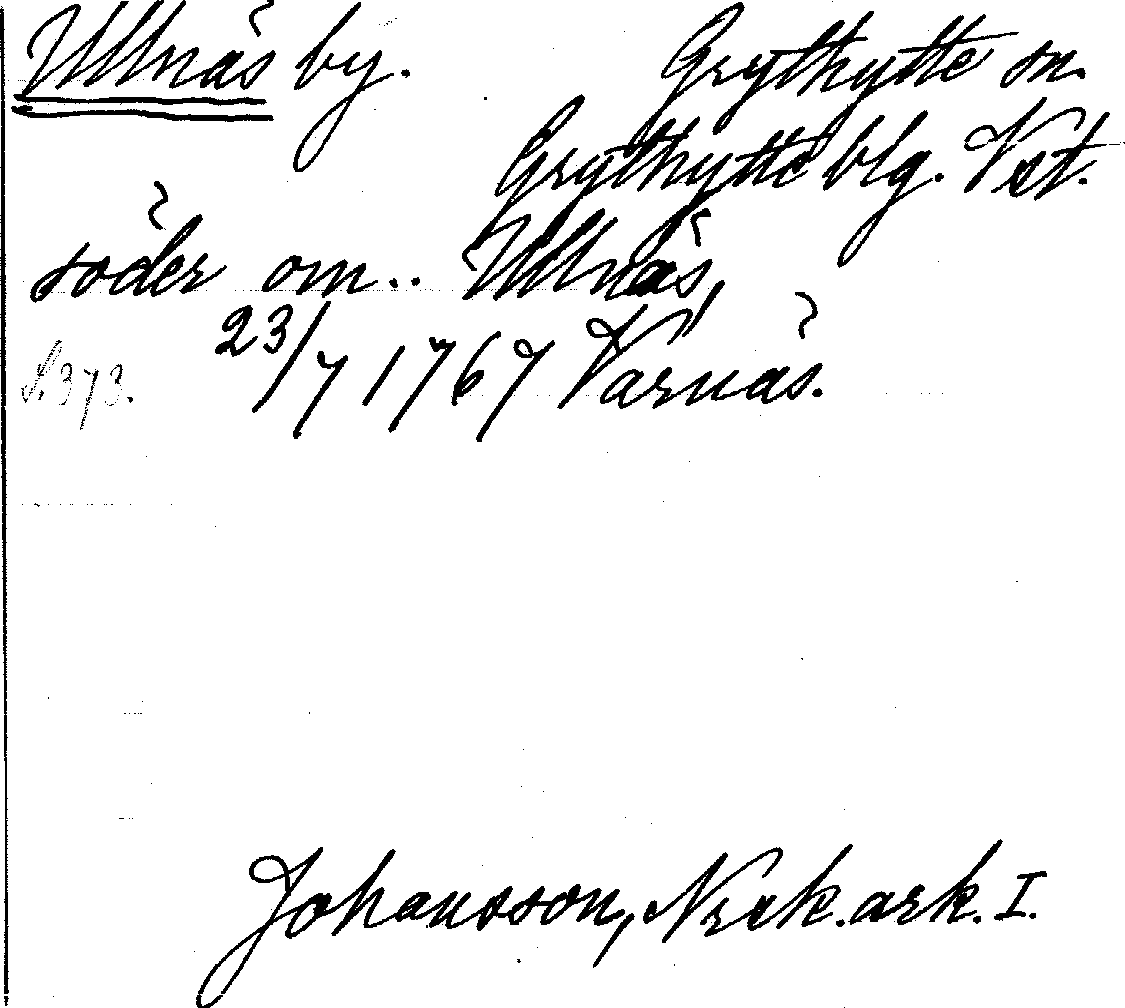 Ullnäs by. Grythytte sn.
Grythytte blg. Vst.
söder om.. Ullnäs,
S. 373. 23/7 1767 Varnäs.
Johansson, Nrsk. ark. I.